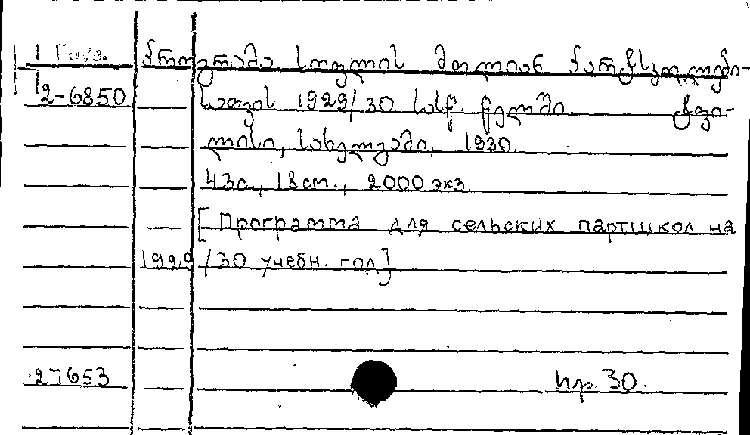 პროგრამა სოფლის პარტსკოლები-
2-6850 სათვის 1929/30 სას. წელში ტფი-
ლისი, სახელგამი, 1930.
43с., 18см., 2000 экз
[Программа для сельских партшкол на
1929/30 учебн. год]
27653 пр. 30.